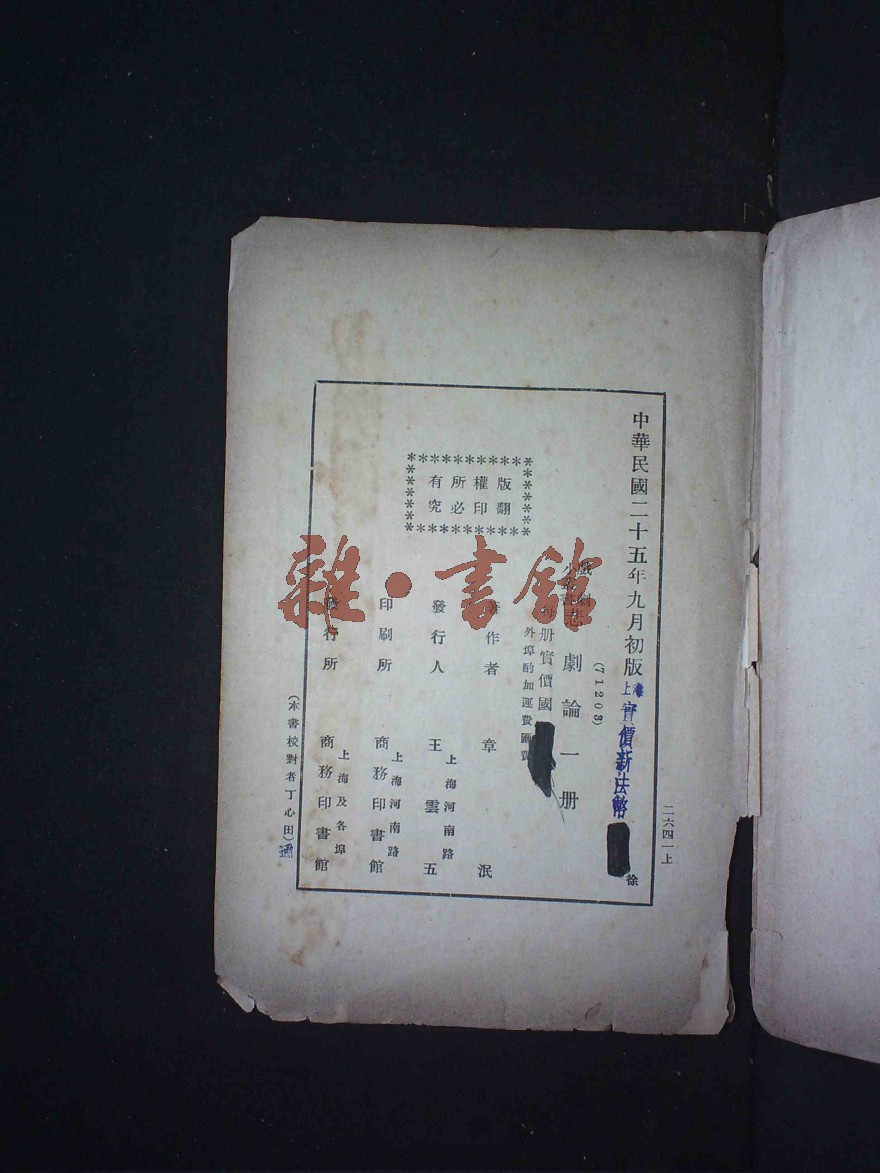 二六四一上
中華民國二十五年九月初版
上海實價新法幣
徐
(71203)
戲劇小叢書悲劇論一册
每册實價國
外埠酌加運費匯費
版權所有
翻印必究
著作者 章泯
上海河南路
發行人 王雲五
上海河南路
印刷所 商務印書館
上海及各埠
發行所 商務印書館
(本書校對者丁心田)
雜·書館